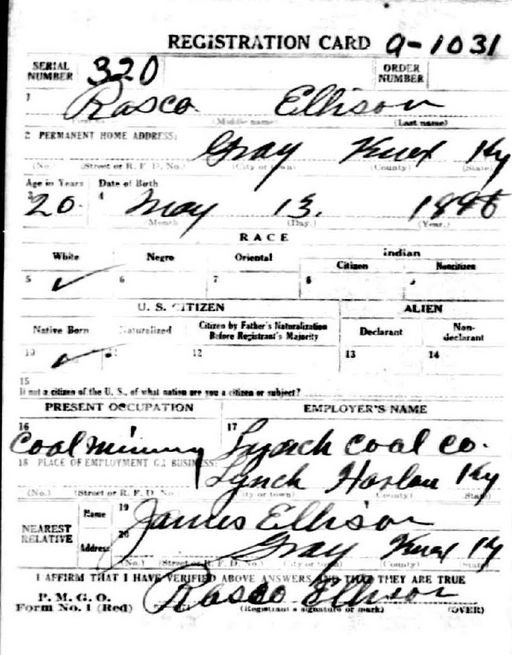 REGISTRATION CARD a-1031
SERIAL NUMBER 320 ORDER NUMBER
1 Rasco Ellison
(Middle name) (Last name)
2 PERMANENT HOME ADDRESS:
Gray Knox Ky
(No.) (Street or R. F. D. No.) (City or town) (County) (State)
Age in Years Date of Birth
3 20 4 May 13. 1898
Month (Day.) (Year.)
RACE
White Negro Oriental Indian
Citizen Noncitizen
5 ✓ 6 7 8
U. S. CITIZEN ALIEN
Native Born Naturalized Citizen by Father's Naturalization Before Registrant's Majority Declarant Non-declarant
10 ✓ 11 12 13 14
15
If not a citizen of the U. S., of what nation are you a citizen or subject?
PRESENT OCCUPATION EMPLOYER'S NAME
16 Coal mining 17 Lynch Coal co.
18 PLACE OF EMPLOYMENT OR BUSINESS:
Lynch Harlan Ky
(No.) (Street or R. F. D. No.) (City or town) (County) (State)
NEAREST RELATIVE
Name 19 James Ellison
Address 20 Gray Knox Ky
(No.) (Street or R. F. D. No.) (City or town) (County) (State)
I AFFIRM THAT I HAVE VERIFIED ABOVE ANSWERS AND THAT THEY ARE TRUE
P. M. G. O.
Form No. 1 (Red) Rasco Ellison
(Registrant's signature or mark) (OVER)